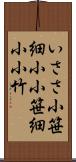 いささ小笹
細小小笹細
小小竹